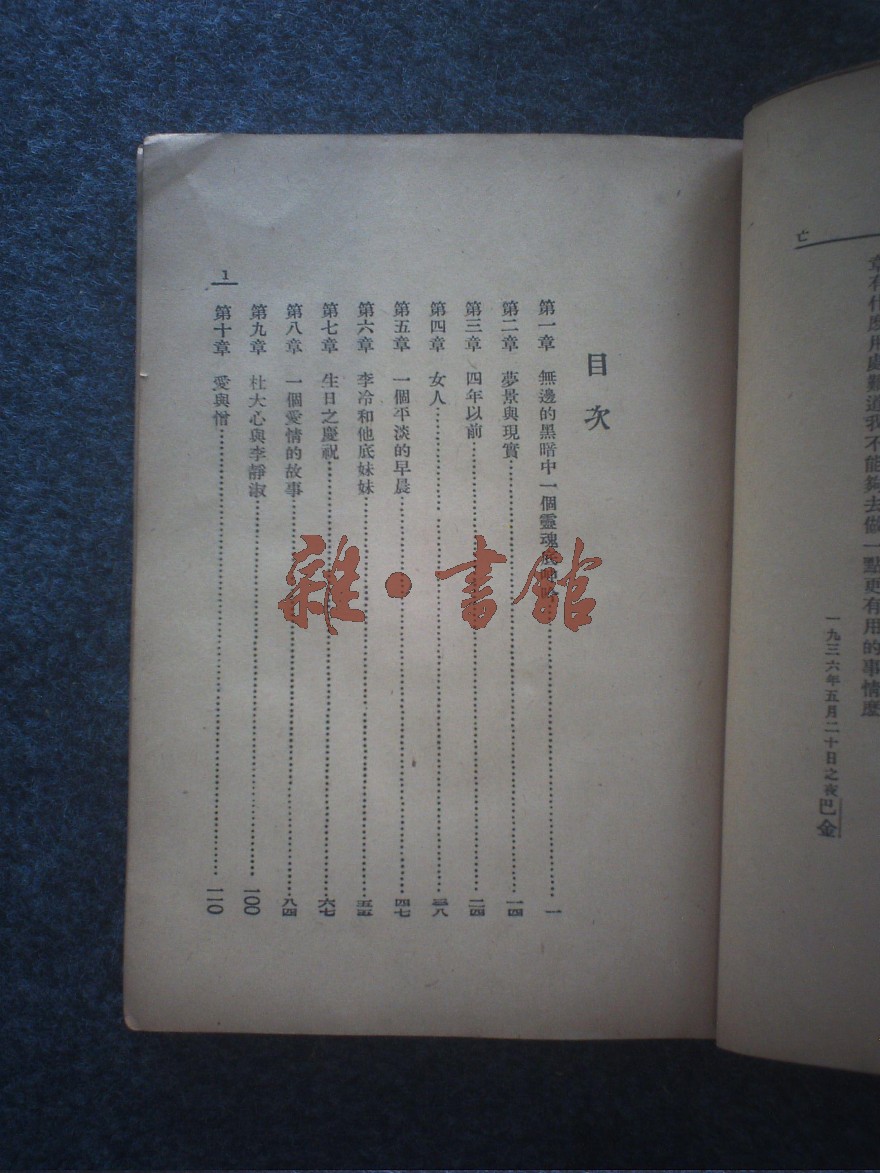 亡
章有什麽用處難道我不能夠去做一點更有用的事情麽
一九三六年五月二十日之夜巴金
目次
第一章 無邊的黑暗中一個靈魂底 一
第二章 夢景與現實 一四
第三章 四年以前 二四
第四章 女人 三八
第五章 一個平淡的早晨 四七
第六章 李冷和他底妹妹 五五
第七章 生日之慶祝 六七
第八章 一個愛情的故事 八四
第九章 杜大心與李靜淑 100
第十章 愛與憎 一一0
1
雜·書館